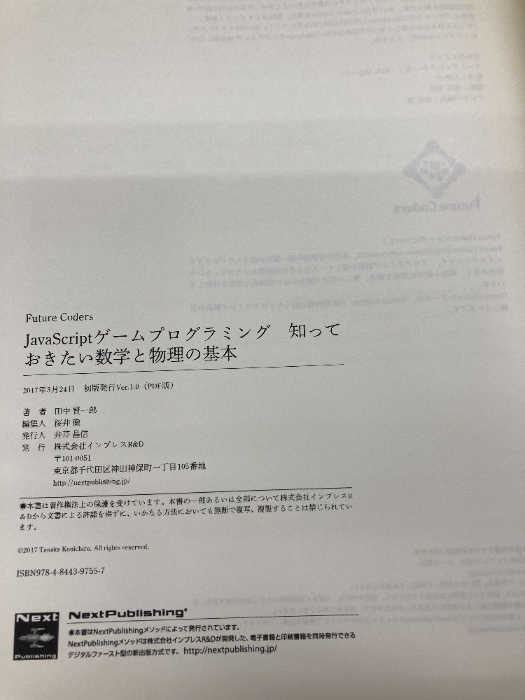 Future Coders
JavaScriptゲームプログラミング 知って
おきたい数学と物理の基本
2017年3月24日 初版発行Ver.1.0（PDF版）
著 者 田中 賢一郎
編集人 桜井 徹
発行人 井芹 昌信
発 行 株式会社インプレスR&D
〒101-0051
東京都千代田区神田神保町一丁目105番地
http://nextpublishing.jp/
●本書は著作権法上の保護を受けています。本書の一部あるいは全部について株式会社インプレスR
&Dから文書による許諾を得ずに、いかなる方法においても無断で複写、複製することは禁じられてい
ます。
©2017 Tanaka Kenichiro. All rights reserved.
ISBN978-4-8443-9755-7
Next
Publishing
NextPublishing®
●本書はNextPublishingメソッドによって発行されています。
NextPublishingメソッドは株式会社インプレスR&Dが開発した、電子書籍と印刷書籍を同時発行できる
デジタルファースト型の新出版方式です。http://nextpublishing.jp/